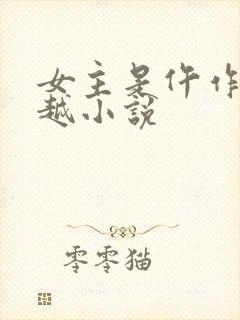 女主是仵作
越小说
零零猫